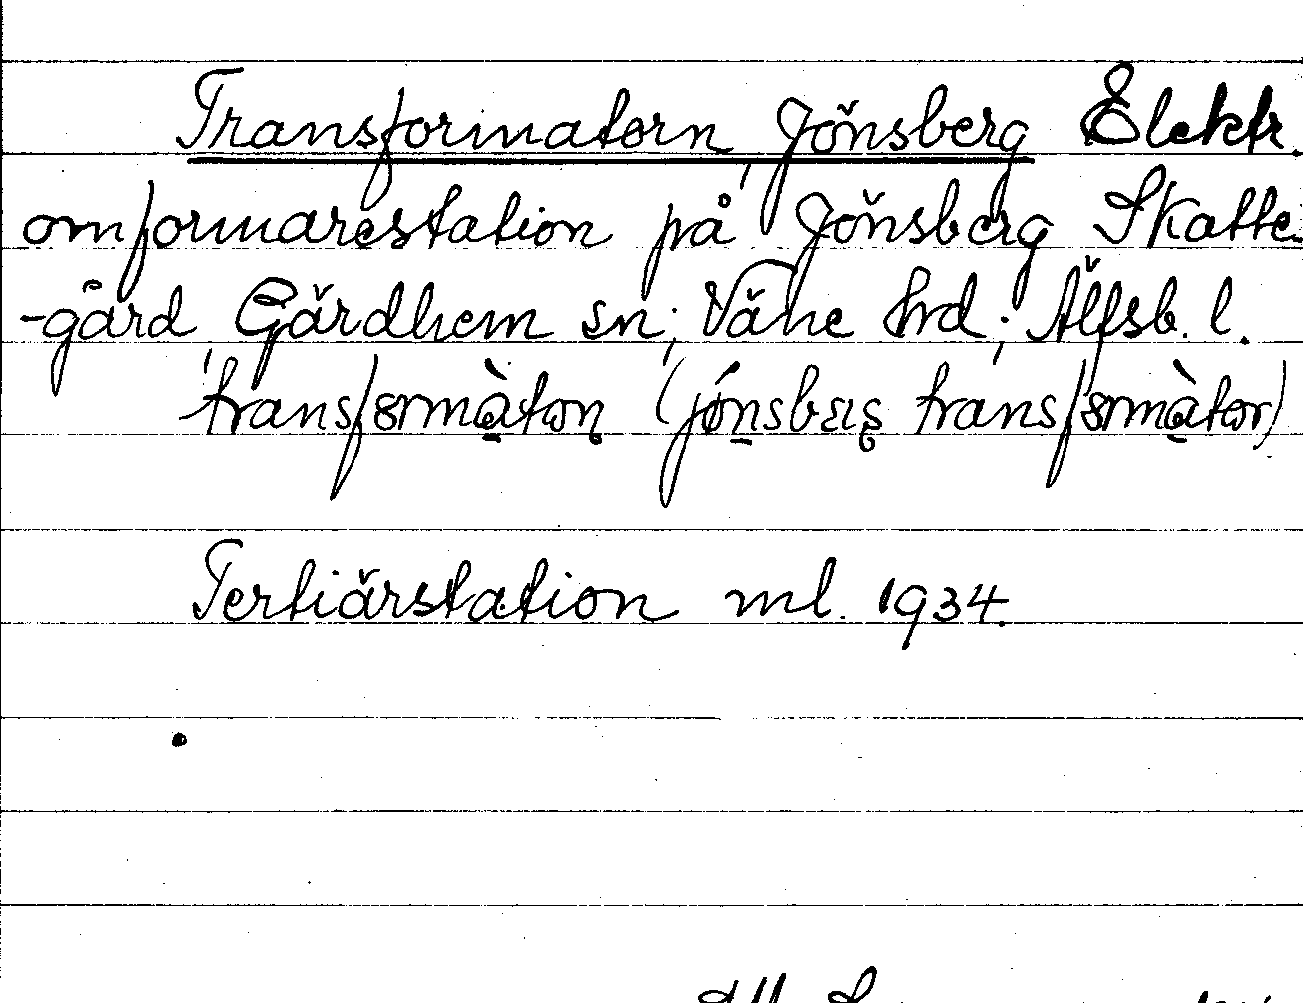 Transformatorn, Jönsberg Elektr.
omformarestation på Jönsberg Skatte
-gård, Gärdhem sn; Väne hrd; Älfsb. l.
transformàton (jónsbærg transformàtor)
Tertiärstation ml. 1934.